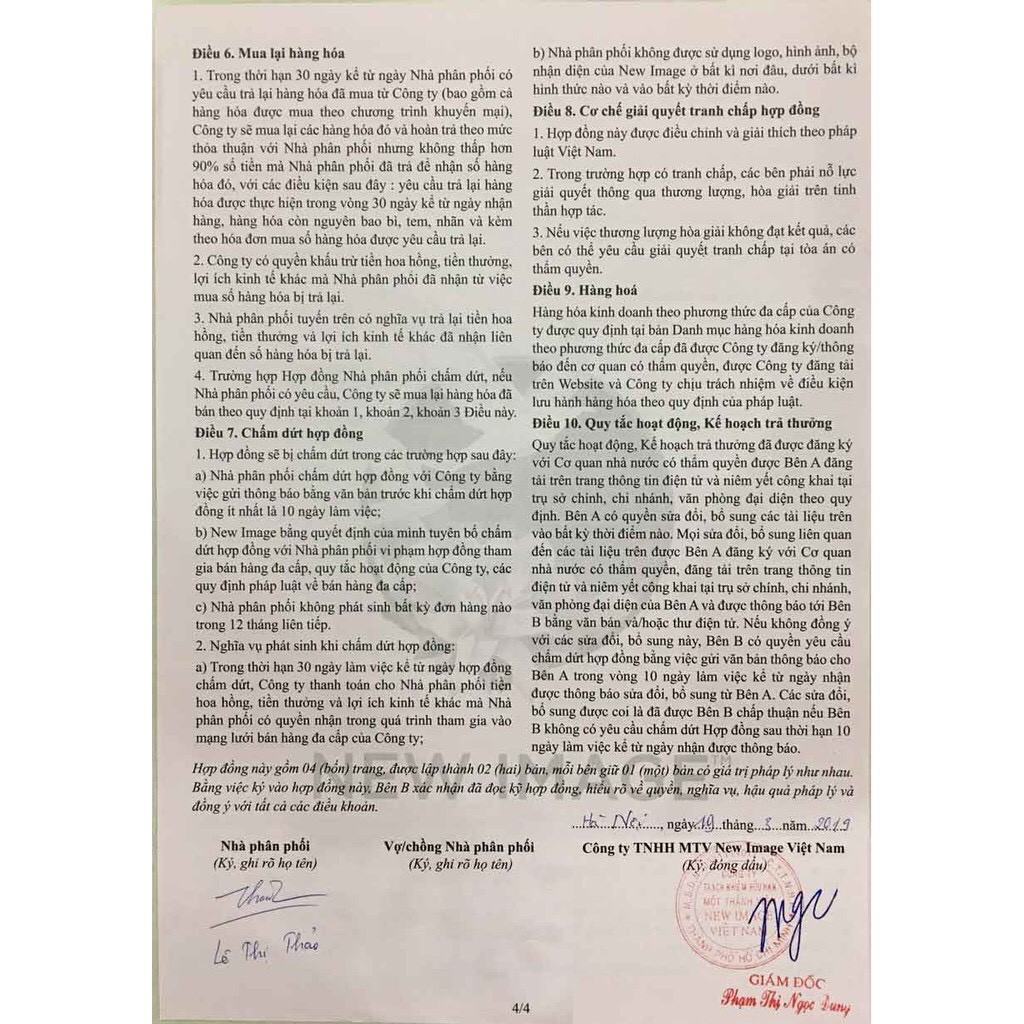 Điều 6. Mua lại hàng hóa
1. Trong thời hạn 30 ngày kể từ ngày Nhà phân phối có
yêu cầu trả lại hàng hóa đã mua từ Công ty (bao gồm cả
hàng hóa được mua theo chương trình khuyến mại),
Công ty sẽ mua lại các hàng hóa đó và hoàn trả theo mức
thỏa thuận với Nhà phân phối nhưng không thấp hơn
90% số tiền mà Nhà phân phối đã trả để nhận số hàng
hóa đó, với các điều kiện sau đây : yêu cầu trả lại hàng
hóa được thực hiện trong vòng 30 ngày kể từ ngày nhận
hàng, hàng hóa còn nguyên bao bì, tem, nhãn và kèm
theo hóa đơn mua số hàng hóa được yêu cầu trả lại.
2. Công ty có quyền khấu trừ tiền hoa hồng, tiền thưởng,
lợi ích kinh tế khác mà Nhà phân phối đã nhận từ việc
mua số hàng hóa bị trả lại.
3. Nhà phân phối tuyến trên có nghĩa vụ trả lại tiền hoa
hồng, tiền thưởng và lợi ích kinh tế khác đã nhận liên
quan đến số hàng hóa bị trả lại.
4. Trường hợp Hợp đồng Nhà phân phối chấm dứt, nếu
Nhà phân phối có yêu cầu, Công ty sẽ mua lại hàng hóa đã
bán theo quy định tại khoản 1, khoản 2, khoản 3 Điều này.
Điều 7. Chấm dứt hợp đồng
1. Hợp đồng sẽ bị chấm dứt trong các trường hợp sau đây:
a) Nhà phân phối chấm dứt hợp đồng với Công ty bằng
việc gửi thông báo bằng văn bản trước khi chấm dứt hợp
đồng ít nhất là 10 ngày làm việc;
b) New Image bằng quyết định của mình tuyên bố chấm
dứt hợp đồng với Nhà phân phối vi phạm hợp đồng tham
gia bán hàng đa cấp, quy tắc hoạt động của Công ty, các
quy định pháp luật về bán hàng đa cấp;
c) Nhà phân phối không phát sinh bất kỳ đơn hàng nào
trong 12 tháng liên tiếp.
2. Nghĩa vụ phát sinh khi chấm dứt hợp đồng:
a) Trong thời hạn 30 ngày làm việc kể từ ngày hợp đồng
chấm dứt, Công ty thanh toán cho Nhà phân phối tiền
hoa hồng, tiền thưởng và lợi ích kinh tế khác mà Nhà
phân phối có quyền nhận trong quá trình tham gia vào
mạng lưới bán hàng đa cấp của Công ty;
b) Nhà phân phối không được sử dụng logo, hình ảnh, bộ
nhận diện của New Image ở bất kì nơi đâu, dưới bất kì
hình thức nào và vào bất kỳ thời điểm nào.
Điều 8. Cơ chế giải quyết tranh chấp hợp đồng
1. Hợp đồng này được điều chỉnh và giải thích theo pháp
luật Việt Nam.
2. Trong trường hợp có tranh chấp, các bên phải nỗ lực
giải quyết thông qua thương lượng, hòa giải trên tinh
thần hợp tác.
3. Nếu việc thương lượng hòa giải không đạt kết quả, các
bên có thể yêu cầu giải quyết tranh chấp tại tòa án có
thẩm quyền.
Điều 9. Hàng hoá
Hàng hóa kinh doanh theo phương thức đa cấp của Công
ty được quy định tại bản Danh mục hàng hóa kinh doanh
theo phương thức đa cấp đã được Công ty đăng ký/thông
báo đến cơ quan có thẩm quyền, được Công ty đăng tải
trên Website và Công ty chịu trách nhiệm về điều kiện
lưu hành hàng hóa theo quy định của pháp luật.
Điều 10. Quy tắc hoạt động, Kế hoạch trả thưởng
Quy tắc hoạt động, Kế hoạch trả thưởng đã được đăng ký
với Cơ quan nhà nước có thẩm quyền được Bên A đăng
tải trên trang thông tin điện tử và niêm yết công khai tại
trụ sở chính, chi nhánh, văn phòng đại diện theo quy
định. Bên A có quyền sửa đổi, bổ sung các tài liệu trên
vào bất kỳ thời điểm nào. Mọi sửa đổi, bổ sung liên quan
đến các tài liệu trên được Bên A đăng ký với Cơ quan
nhà nước có thẩm quyền, đăng tải trên trang thông tin
điện tử và niêm yết công khai tại trụ sở chính, chi nhánh,
văn phòng đại diện của Bên A và được thông báo tới Bên
B bằng văn bản và/hoặc thư điện tử. Nếu không đồng ý
với các sửa đổi, bổ sung này, Bên B có quyền yêu cầu
chấm dứt hợp đồng bằng việc gửi văn bản thông báo cho
Bên A trong vòng 10 ngày làm việc kể từ ngày nhận
được thông báo sửa đổi, bổ sung từ Bên A. Các sửa đổi,
bổ sung được coi là đã được Bên B chấp thuận nếu Bên
B không có yêu cầu chấm dứt Hợp đồng sau thời hạn 10
ngày làm việc kể từ ngày nhận được thông báo.
NEW IMAGE™
Hợp đồng này gồm 04 (bốn) trang, được lập thành 02 (hai) bản, mỗi bên giữ 01 (một) bản có giá trị pháp lý như nhau.
Bằng việc ký vào hợp đồng này, Bên B xác nhận đã đọc kỹ hợp đồng, hiểu rõ về quyền, nghĩa vụ, hậu quả pháp lý và
đồng ý với tất cả các điều khoản.
Hà Nội, ngày 19 tháng 3 năm 2019
Nhà phân phối
(Ký, ghi rõ họ tên)
Vợ/chồng Nhà phân phối
(Ký, ghi rõ họ tên)
Công ty TNHH MTV New Image Việt Nam
(Ký, đóng dấu)
Lê Thị Thảo
CÔNG TY
TRÁCH NHIỆM HỮU HẠN
MỘT THÀNH
NEW IMAGE
VIỆT NAM
THÀNH PHỐ HỒ CHÍ MINH
GIÁM ĐỐC
Phạm Thị Ngọc Dung
4/4